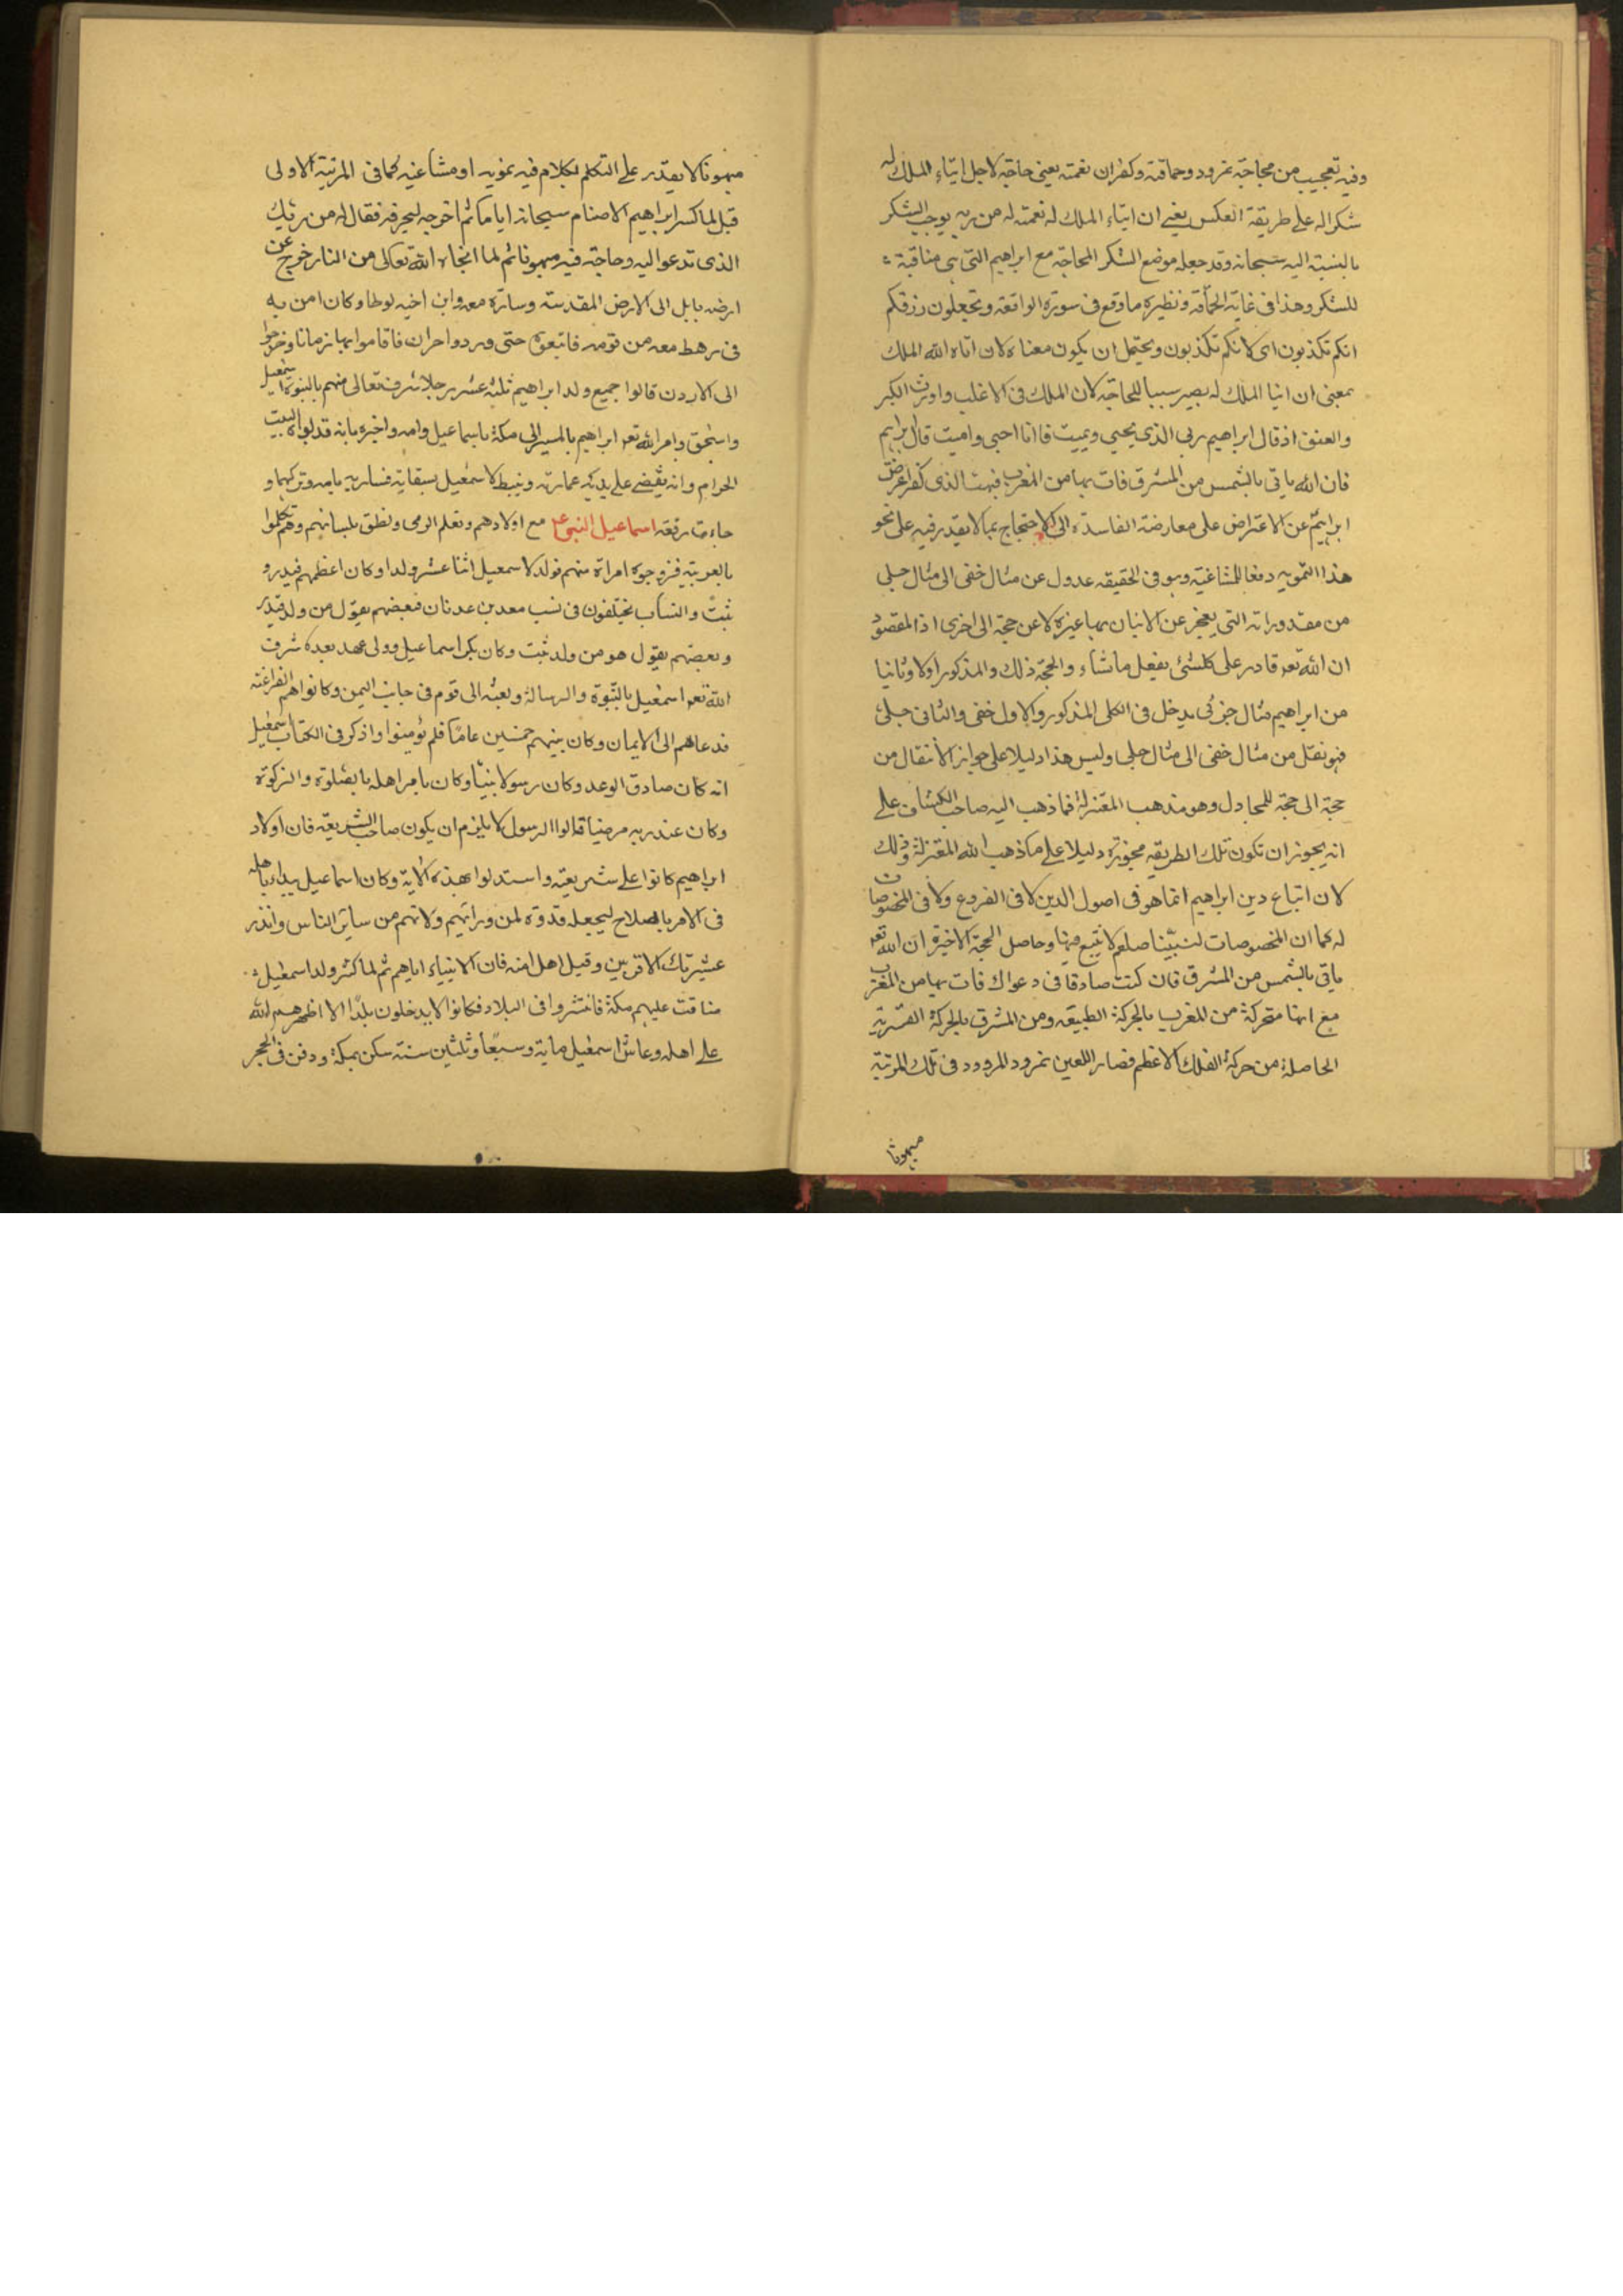 وفيه تعجيب من محاجة نمرود وحماقته وكفران نعمته يعني حاجه لاجل ايتاء الملك له
شكرا له على طريقة العكس يعني ان ايتاء الملك له نعمة له من ربه يوجب الشكر
بالنسبة اليه سبحانه وقد جعله موضع الشكر المحاجة مع ابراهيم التي هي مناقبة
للشكر وهذا في غاية الحماقة ونظيره ما وقع في سورة الواقعة وتجعلون رزقكم
انكم تكذبون اى لانكم تكذبون ويحتمل ان يكون معناه لان اتاه الله الملك
بمعنى ان ايتا الملك له يصير سببا للمحاجة لان الملك في الاغلب واورث الكبر
والعنق اذ قال ابراهيم ربي الذي يحيي ويميت قال انا احيي واميت قال ابراهيم
فان الله ياتي بالشمس من المشرق فات بها من المغرب فبهت الذي كفر اعرض
ابراهيم عن الاعتراض على معارضة الفاسدة الى الاحتجاج بما لا يقدر فيه على نحو
هذا التمويه دفعا للمشاغبة وهو في الحقيقه عدول عن مثال خفى الى مثال جلي
من مقدوراته التي يعجز عن الاتيان بها غيره لا عن حجة الى اخرى اذ المقصود
ان الله تعه قادر على كلشئ يفعل ما شاء والحجة ذلك والمذكور اولا وثانيا
من ابراهيم مثال جزئى يدخل في الكلى المذكور والاول خفى والثاني جلى
فهو نقل من مثال خفى الى مثال جلي وليس هذا دليلا على جواز الانتقال من
حجة الى حجة للمجادل وهو مذهب المعتزلة فما ذهب اليه صاحب الكشاف على
انه يجوز ان تكون تلك الطريقه مجوزة دليلا على ما ذهب الله المعتزلة وذلك
لان اتباع دين ابراهيم انما هو في اصول الدين لا في الفروع ولا في المخصوصات
له كما ان المخصوصات لنبينا صلعم لا يتبع فيها وحاصل الحجة الاخيرة ان الله تعه
ياتي بالشمس من المشرق فان كنت صادقا في دعواك فات بها من المغرب
مع انها متحركة من المغرب بالحركة الطبيعه ومن المشرق بالحركة القسرية
الحاصلة من حركة الفلك الاعظم فصار اللعين نمرود المردود في تلك المرتبة
مبهوتا
مبهوتا لا يقدر على التكلم بكلام فيه تمويه او مشاغبه كما في المرتبة الاولى
قيل لما كسر ابراهيم الاصنام سجانه اياما ثم اخرجه ليحرقه فقال له من ربك
الذى تدعو اليه وحاجته فيه مبهوتا ثم لما انجاه الله تعالى من النار خرج عن
ارض بابل الى الارض المقدسة وسارة معه وابن اخيه لوطا وكان امن به
في رهط معه من قومه فاتبعوه حتى وردوا حران فاقاموا بها زمانا وخرجوا
الى الاردن قالوا جميع ولد ابراهيم ثلثة عشر رجلا شرف تعالى منهم بالنبوة اسمعيل
واسحق وامر الله تعه ابراهيم بالمسير الى مكة باسماعيل وامه واخبره بانه قد بواه البيت
الحرام وانه يقضى على يديه عمارته وينبط لاسمعيل سقايته فسار به بامه وتركهما و
جاءت رفقه اسماعيل النبي عم مع اولادهم وتعلم الرمى ونطق بلسانهم وهم تكلموا
بالعربية فزوجوه امراة منهم فولد لاسمعيل اثنا عشر ولدا وكان اعظمهم قيدر و
ثبت والنساب يختلفون في نسب معد بن عدنان فبعضهم يقول من ولد قيدر
وبعضهم يقول هو من ولد ثبت وكان بكر اسماعيل وولى عهد بعده شرف
الله تعه اسمعيل بالنبوة والرسالة وبعثه الى قوم في جانب اليمن وكانوا هم الفراعنه
فدعاهم الى الايمان وكان بينهم خمسين عاما فلم يؤمنوا واذكر في الكتاب اسمعيل
انه كان صادق الوعد وكان رسولا نبيا وكان يامر اهله بالصلوة والزكوة
وكان عند ربه مرضيا قالوا الرسول لا يلزم ان يكون صاحب الشريعة فان اولاد
ابراهيم كانوا على شريعته واستدلوا بهذه الاية وكان اسماعيل يبدا باهله
في الامر بالصلاح ليجعله قدوة لمن وراتهم ولانهم من سائر الناس وانذر
عشيرتك الاقربين وقيل اهل امنه فان الانبياء اباهم ثم لما كثر ولد اسمعيل
ضاقت عليهم مكة فانتشروا في البلاد فكانوا لا يدخلون بلدا الا اظهرهم الله
على اهله وعاش اسمعيل ماية وسبعا وثلثين سنة سكن بمكة ودفن في الحجر